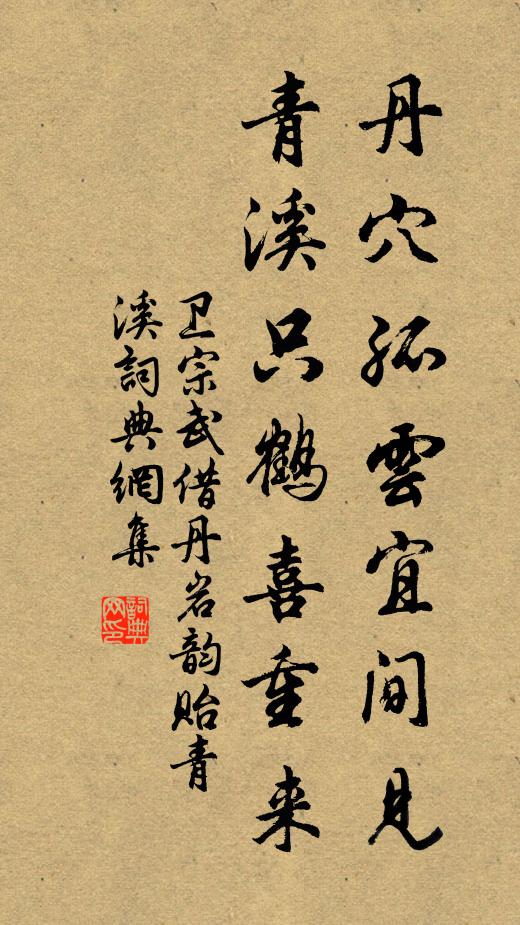 丹穴孤雲宜間見
青溪只鶴喜重来
卫宗武借丹岩韵贻青
溪詞典網集
詞典
网印